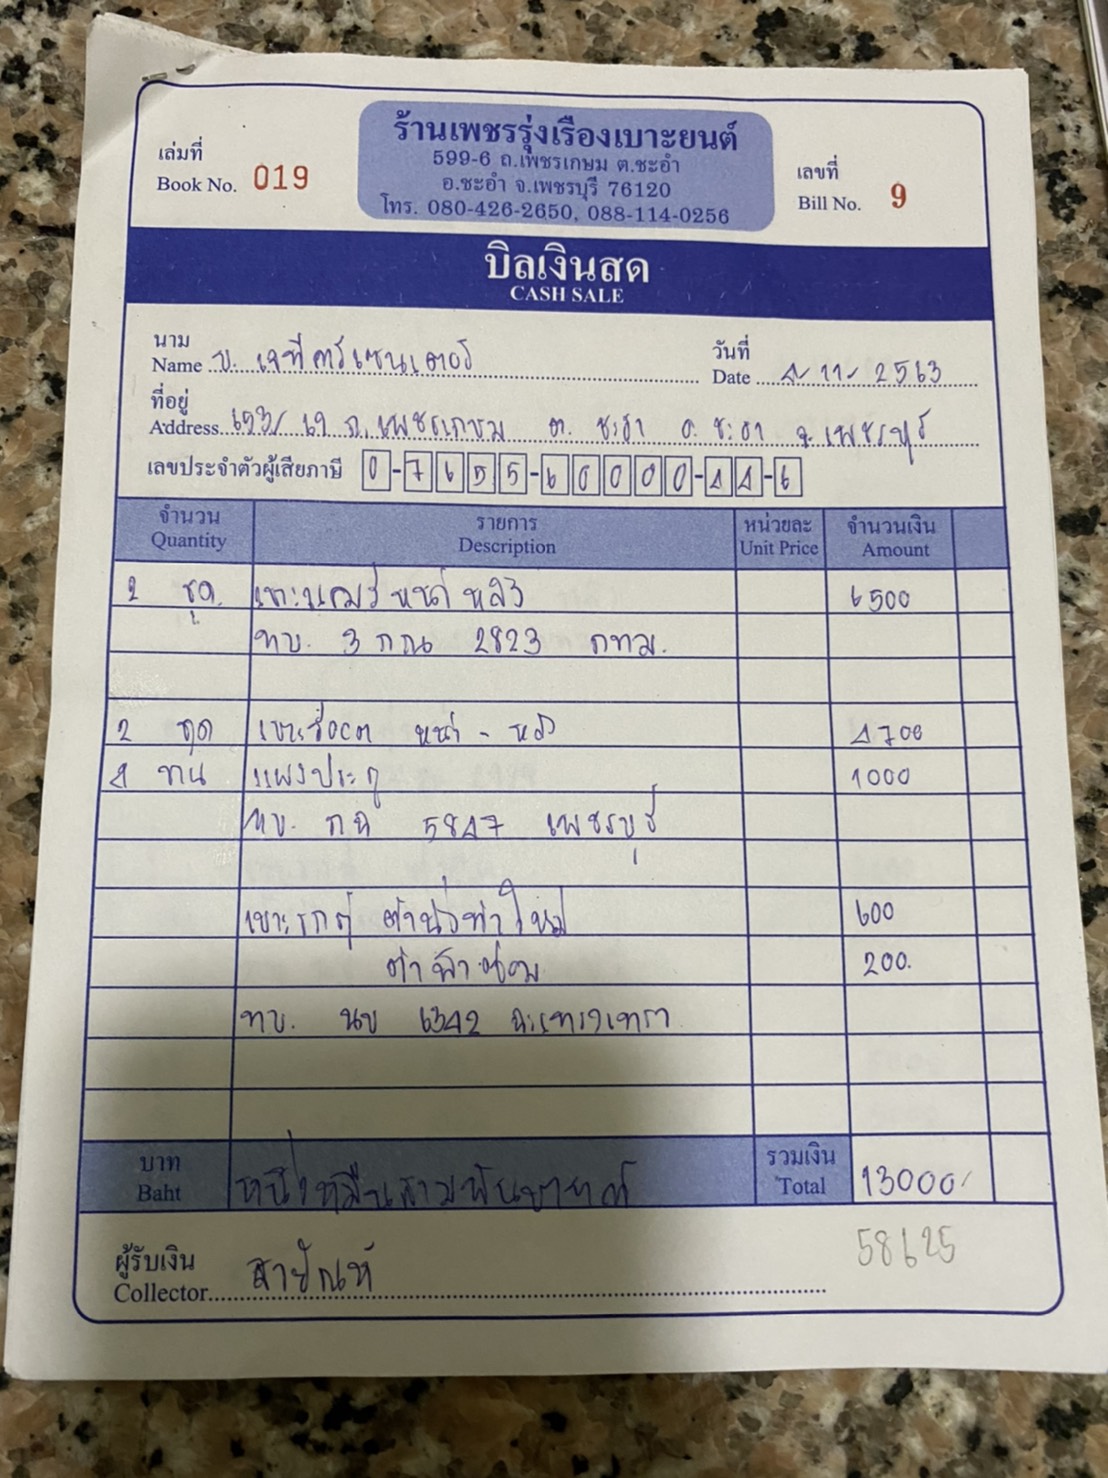 ร้านเพชรรุ่งเรืองเบาะยนต์
599-6 ถ.เพชรเกษม ต.ชะอำ
อ.ชะอำ จ.เพชรบุรี 76120
โทร. 080-426-2650, 088-114-0256
เล่มที่
Book No. 019
เลขที่
Bill No. 9
บิลเงินสด
CASH SALE
นาม
Name บ. เจที คาร์เซนเตอร์
วันที่
Date 11- 2563
ที่อยู่
Address ถ.เพชรเกษม ต. ชะอำ อ. ชะอำ จ. เพชรบุรี
เลขประจำตัวผู้เสียภาษี
จำนวน รายการ หน่วยละ จำนวนเงิน
Quantity Description Unit Price Amount
2 ชุด หน้า หลัง 6500
ทบ. 3 กณ 2823 กทม.
2 ชุด หน้า - หลัง
แผงประตู 1000
ทบ. เพชรบุรี
เบาะรถตู้ ใหม่ 600
200.
ทบ. นข 6342 ฉะเชิงเทรา
บาท
Baht หนึ่งหมื่นสามพันบาท
รวมเงิน
Total 13000
58625
ผู้รับเงิน
Collector สายัณห์